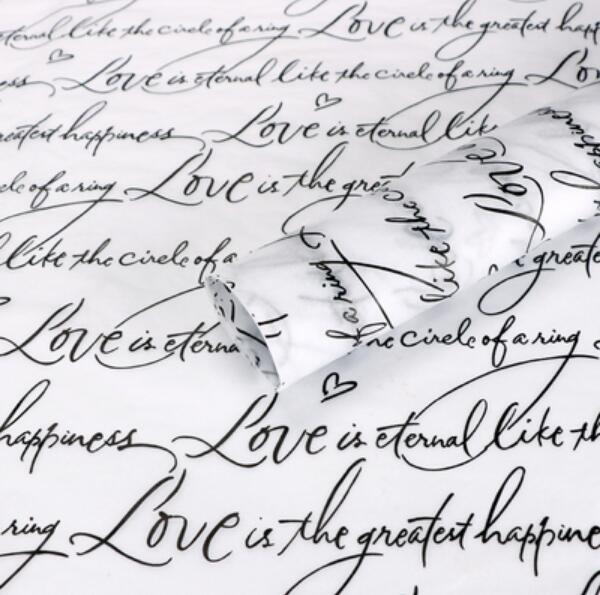 eternal like the circle of a ring Love is the greatest happ
ess Love is eternal like the circle of a ring Lo
reatest happiness Love is eternal lik
cle of a ring Love is the gre
l like the circle of a
Love is eterna
greate
like the c
love
f a ring
he circle of a ring
happiness Love is eternal like th
ring Love is the greatest happine